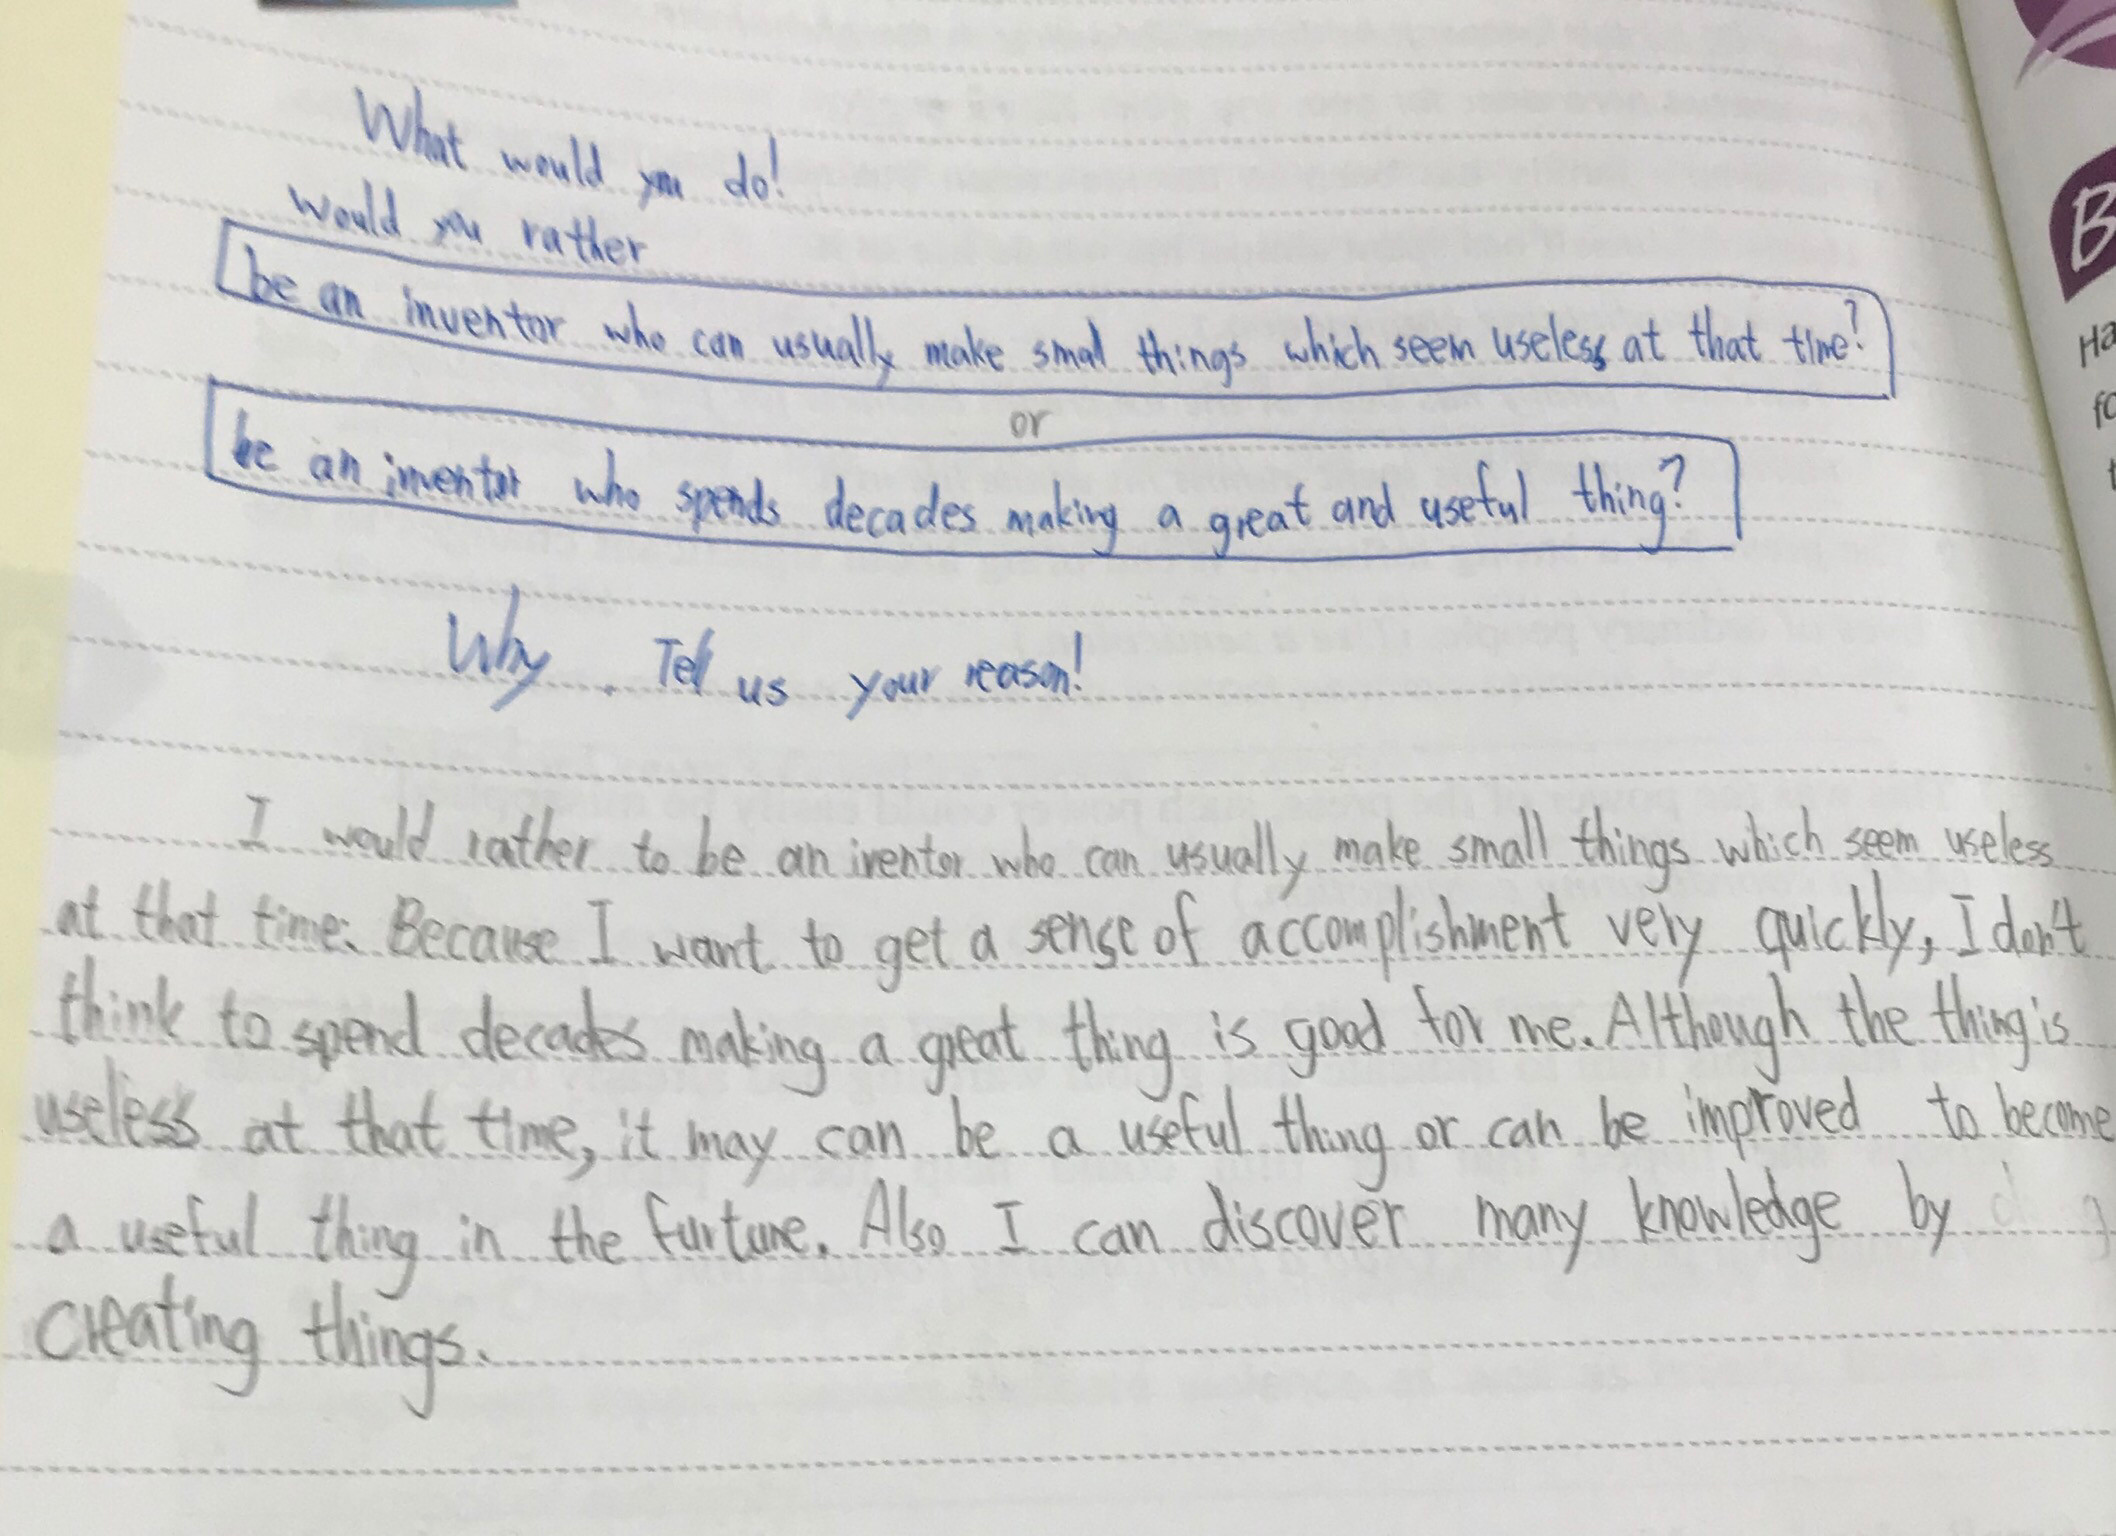 What would you do!
would you rather
be an inventor who can usually make small things which seem useless at that time?
or
be an inventor who spends decades making a great and useful thing?
Why. Tell us your reason!
I would rather to be an iventor who can usually make small things which seem useless
at that time. Because I want to get a sense of accomplishment very quickly, I don't
think to spend decades making a great thing is good for me. Although the thing is
useless at that time, it may can be a useful thing or can be improved to become
a useful thing in the furture. Also I can discover many knowledge by
creating things.
B
Ha
fo
t